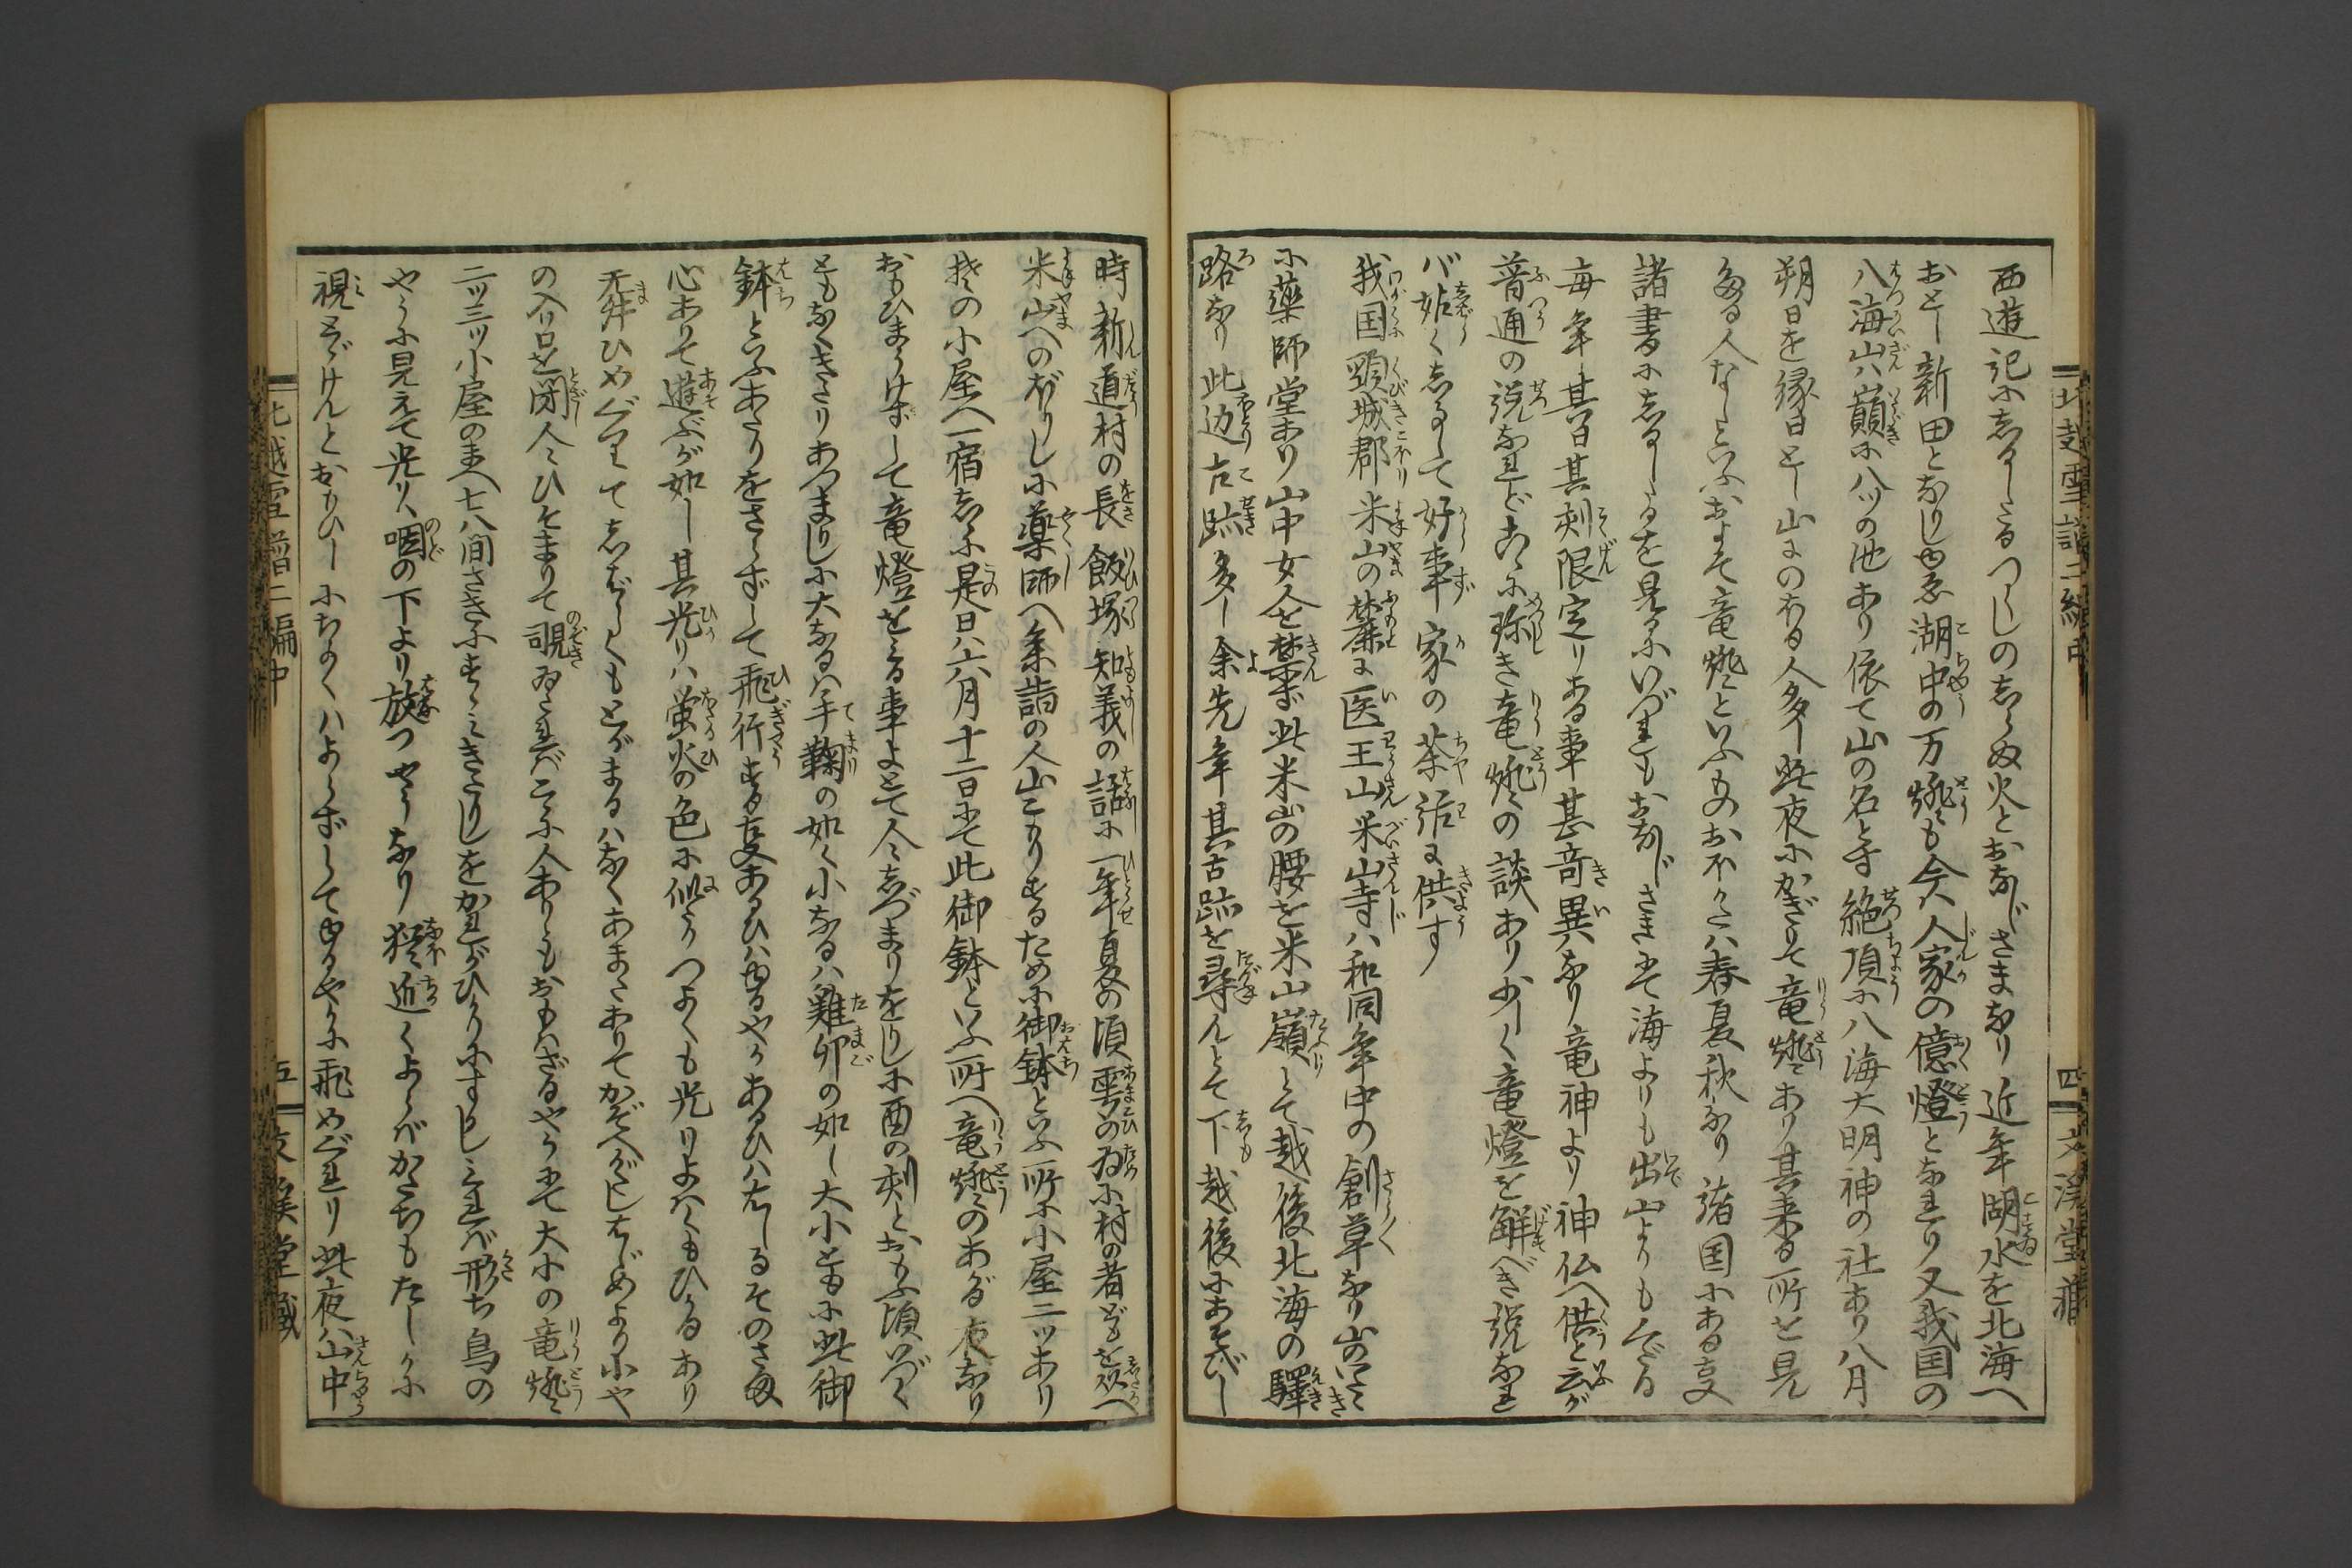 北越雪譜二編中
四
文溪堂藏
西遊記にしるしたるつくしのしらぬ火とおなじさまなり近年湖水を北海へ
おとし新田となりしゆゑ湖中の万燈も今人家の億燈となれり又我国の
八海山ハ巓に八ツの池あり依て山の名とす絶頂に八海大明神の社あり八月
朔日を縁日とし山にのぼる人多し此夜にかぎりて竜燈あり其来る所を見
たる人なしといふおよそ竜燈といふものおほかたハ春夏秋なり諸国にある事
諸書にしるしたるを見るにいづれもおなじさまにて海よりも出山よりもくだる
毎年其日其刻限定りある事甚奇異なり竜神より神仏へ供と云が
普通の説なれど爰に珍き竜燈の談あり少しく竜燈を解べき説なれ
バ姑くしるして好事家の茶話に供す
我国頸城郡米山の麓に医王山米山寺ハ和同年中の創草なり山のいたゞき
に薬師堂あり山中女人を禁ず此米山の腰を米山嶺とて越後北海の驛
路なり此辺古跡多し余先年其古跡を尋んとて下越後にあそびし
時新道村の長飯塚知義の話に一年夏の頃雩の為に村の者どもを从へ
米山へのぼりしに薬師へ参詣の人山こもりするために御鉢といふ所に小屋二ツあり
其の小屋へ一宿しに是日ハ六月十二日にて此御鉢といふ所へ竜燈のあがる夜なり
おもひまうけずして竜燈をみる事よとて人々しづまりをりしに酉の刻とおもふ頃いづく
ともなくきたりあつまりしに大なるハ手鞠の如く小なるハ雞卵の如し大小ともに此御
鉢といふあたりをさらずして飛行する事あるひハゆるやかあるひハはしるそのさま
心ありて遊ぶが如し其光りハ蛍火の色に似たりつよくも光りよハくもひかるあり
舞ひめぐりてしばらくもとゞまるハなくあまたありてかぞへがたしはじめより小や
の入り口を閉人々ひそまりて覗ゐたればこゝに人ありともおもハざるやうにて大小の竜燈
二ツ三ツ小屋のまへ七八間さきにすゝみきたりしをかれがひかりにすかしみれバ形ち鳥の
やうに見えて光りハ咽の下より放つやうなり猶近くよらバかたちもたしかに
視とゞけんとおもひしにちかくハよらずしてゆるやかに飛めぐれり此夜ハ山中
北越雪譜二編中
五
文溪堂藏